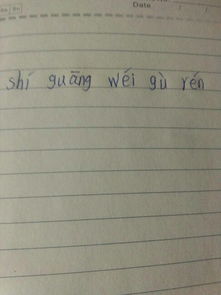 Date
shí guāng wéi gù rén